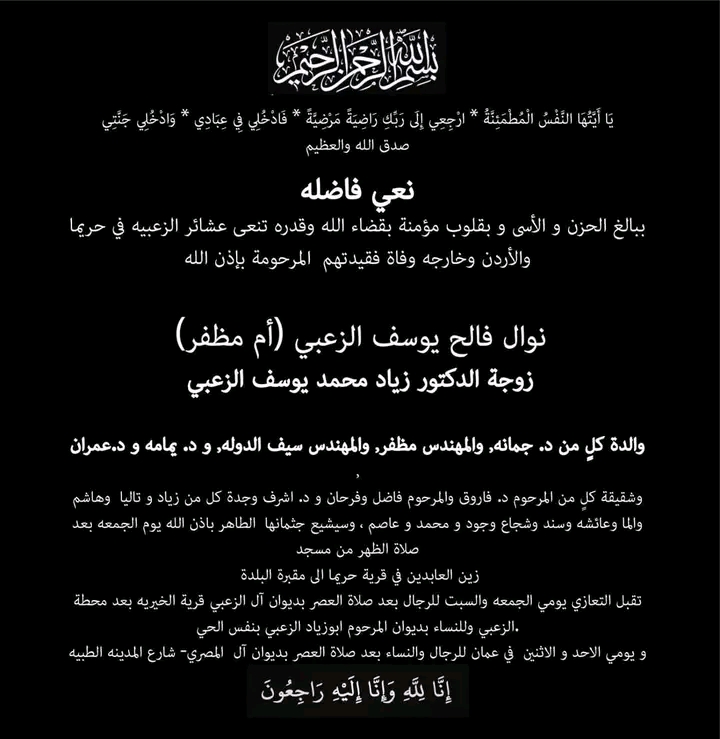 بسم الله الرحمن الرحيم
يَا أَيَّتُهَا النَّفْسُ الْمُطْمَئِنَّةُ * ارْجِعِي إِلَى رَبِّكِ رَاضِيَةً مَرْضِيَّةً * فَادْخُلِي فِي عِبَادِي * وَادْخُلِي جَنَّتِي
صدق الله والعظيم
نعي فاضله
ببالغ الحزن و الأسى و بقلوب مؤمنة بقضاء الله وقدره تنعى عشائر الزعبيه في حريما
والأردن وخارجه وفاة فقيدتهم المرحومة بإذن الله
نوال فالح يوسف الزعبي (أم مظفر)
زوجة الدكتور زياد محمد يوسف الزعبي
والدة كلٍ من د. جمانه, والمهندس مظفر, والمهندس سيف الدوله, و د. يمامه و د.عمران
,
وشقيقة كلٍ من المرحوم د. فاروق والمرحوم فاضل وفرحان و د. اشرف وجدة كل من زياد و تاليا وهاشم
والما وعائشه وسند وشجاع وجود و محمد و عاصم ، وسيشيع جثمانها الطاهر باذن الله يوم الجمعه بعد
صلاة الظهر من مسجد
زين العابدين في قرية حريما الى مقبرة البلدة
تقبل التعازي يومي الجمعه والسبت للرجال بعد صلاة العصر بديوان آل الزعبي قرية الخيريه بعد محطة
الزعبي وللنساء بديوان المرحوم ابوزياد الزعبي بنفس الحي.
و يومي الاحد و الاثنين في عمان للرجال والنساء بعد صلاة العصر بديوان آل المصري- شارع المدينه الطبيه
إِنَّا لِلَّهِ وَإِنَّا إِلَيْهِ رَاجِعُونَ